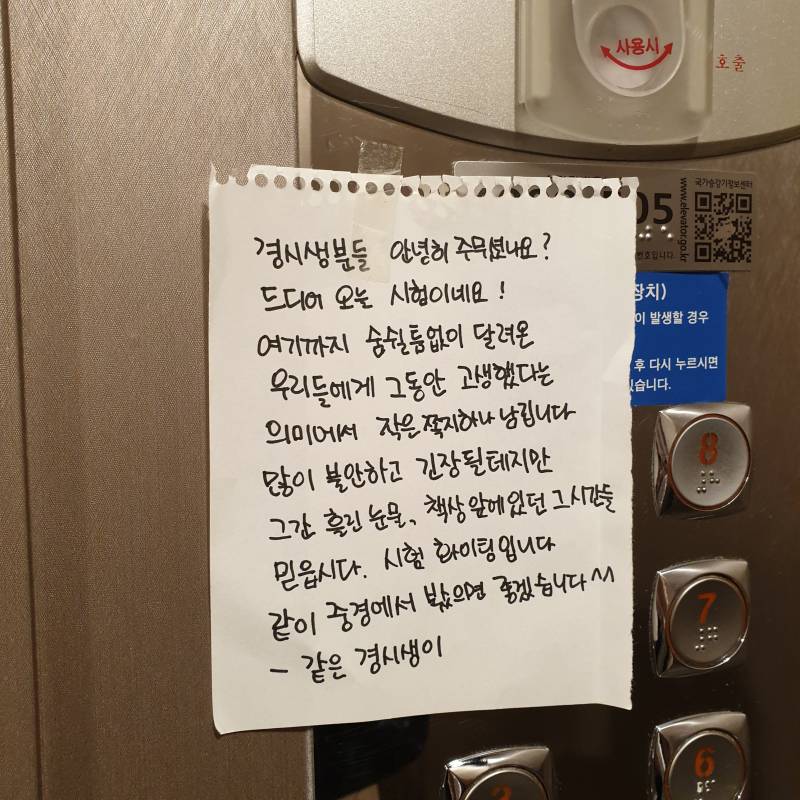 사용시
호출
국가승강기정보센터
www.elevator.go.kr
05
번호입니다
장치)
이 발생할 경우
후 다시 누르시면
있습니다.
경시생분들 안녕히 주무셨나요?
드디어 오늘 시험이네요!
여기까지 숨쉴틈없이 달려온
우리들에게 그동안 고생했다는
의미에서 작은쪽지하나 남깁니다
많이 불안하고 긴장될테지만
그간 흘린 눈물, 책상앞에있던 그시간들
믿읍시다. 시험 화이팅입니다
같이 중경에서 봤으면 좋겠습니다^^
- 같은 경시생이
8
7
6
3